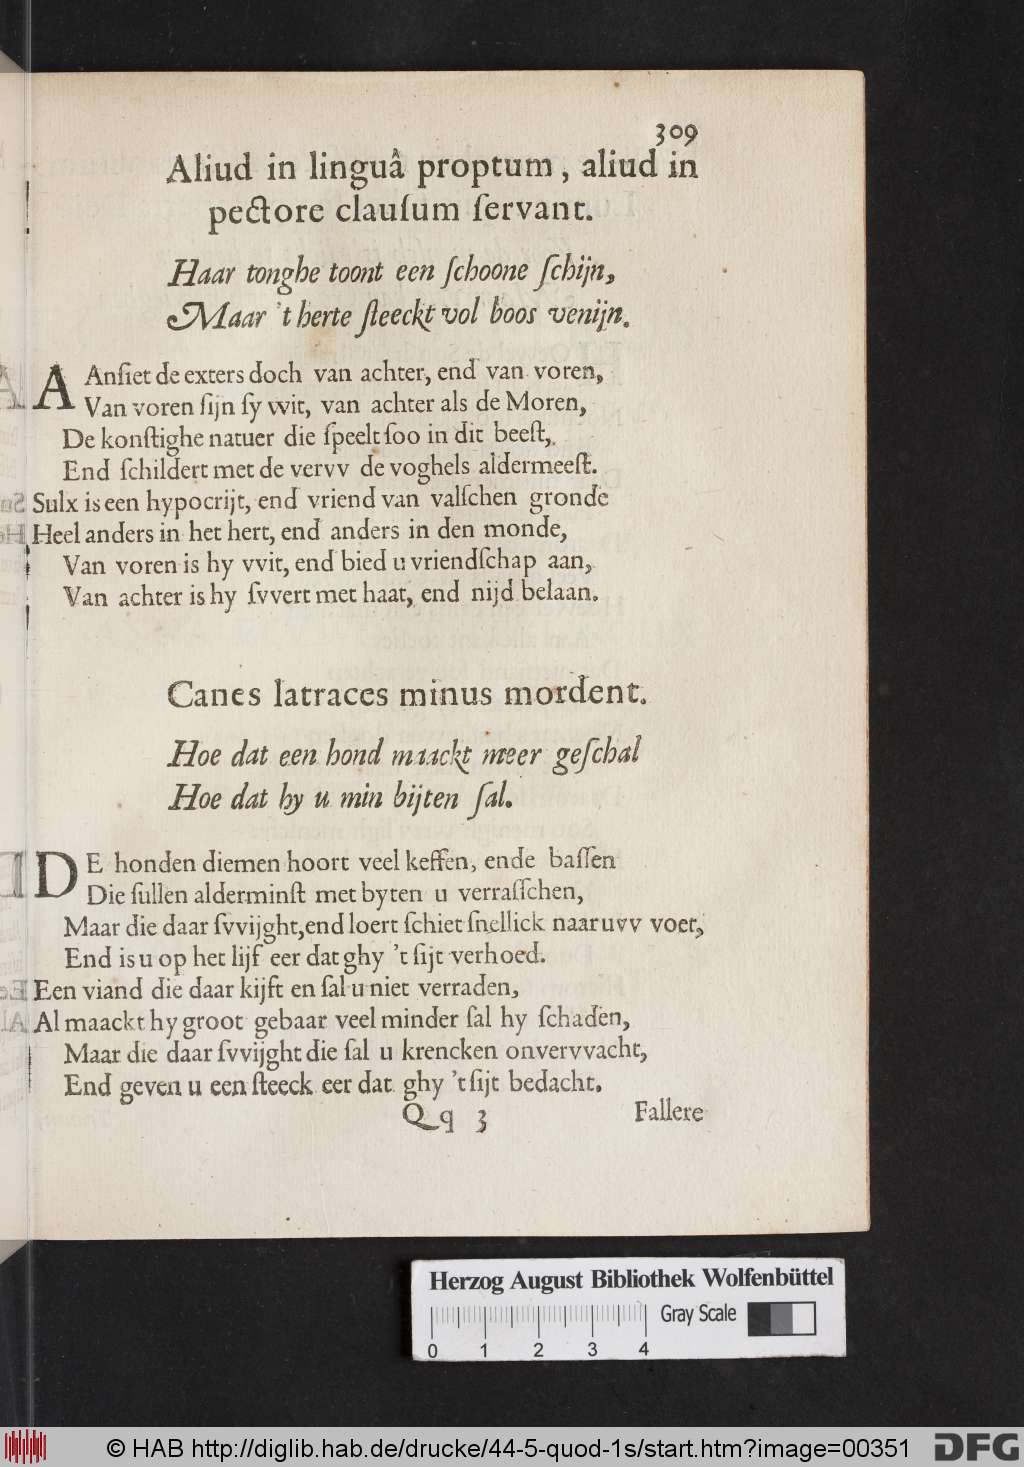 309
Aliud in linguâ proptum, aliud in
pectore clauſum ſervant.
Haar tonghe toont een ſchoone ſchijn,
Maar 't herte ſteeckt vol boos venijn.
AAnſiet de exters doch van achter, end van voren,
Van voren ſijn ſy vvit, van achter als de Moren,
De konſtighe natuer die ſpeelt ſoo in dit beeſt,
End ſchildert met de vervv de voghels aldermeeſt.
Sulx is een hypocrijt, end vriend van valſchen gronde
Heel anders in het hert, end anders in den monde,
Van voren is hy vvit, end bied u vriendſchap aan,
Van achter is hy ſvvert met haat, end nijd belaan.
Canes latraces minus mordent.
Hoe dat een hond maackt meer geſchal
Hoe dat hy u min bijten ſal.
DE honden diemen hoort veel keffen, ende baſſen
Die ſullen alderminſt met byten u verraſſchen,
Maar die daar ſvvijght, end loert ſchiet ſnellick naar uvv voet,
End is u op het lijf eer dat ghy 't ſijt verhoed.
Een viand die daar kijft en ſal u niet verraden,
Al maackt hy groot gebaar veel minder ſal hy ſchaden,
Maar die daar ſvvijght die ſal u krencken onvervvacht,
End geven u een ſteeck eer dat ghy 't ſijt bedacht.
Qq 3
Fallere
Herzog August Bibliothek Wolfenbüttel
Gray Scale
0 1 2 3 4
© HAB http://diglib.hab.de/drucke/44-5-quod-1s/start.htm?image=00351
DFG